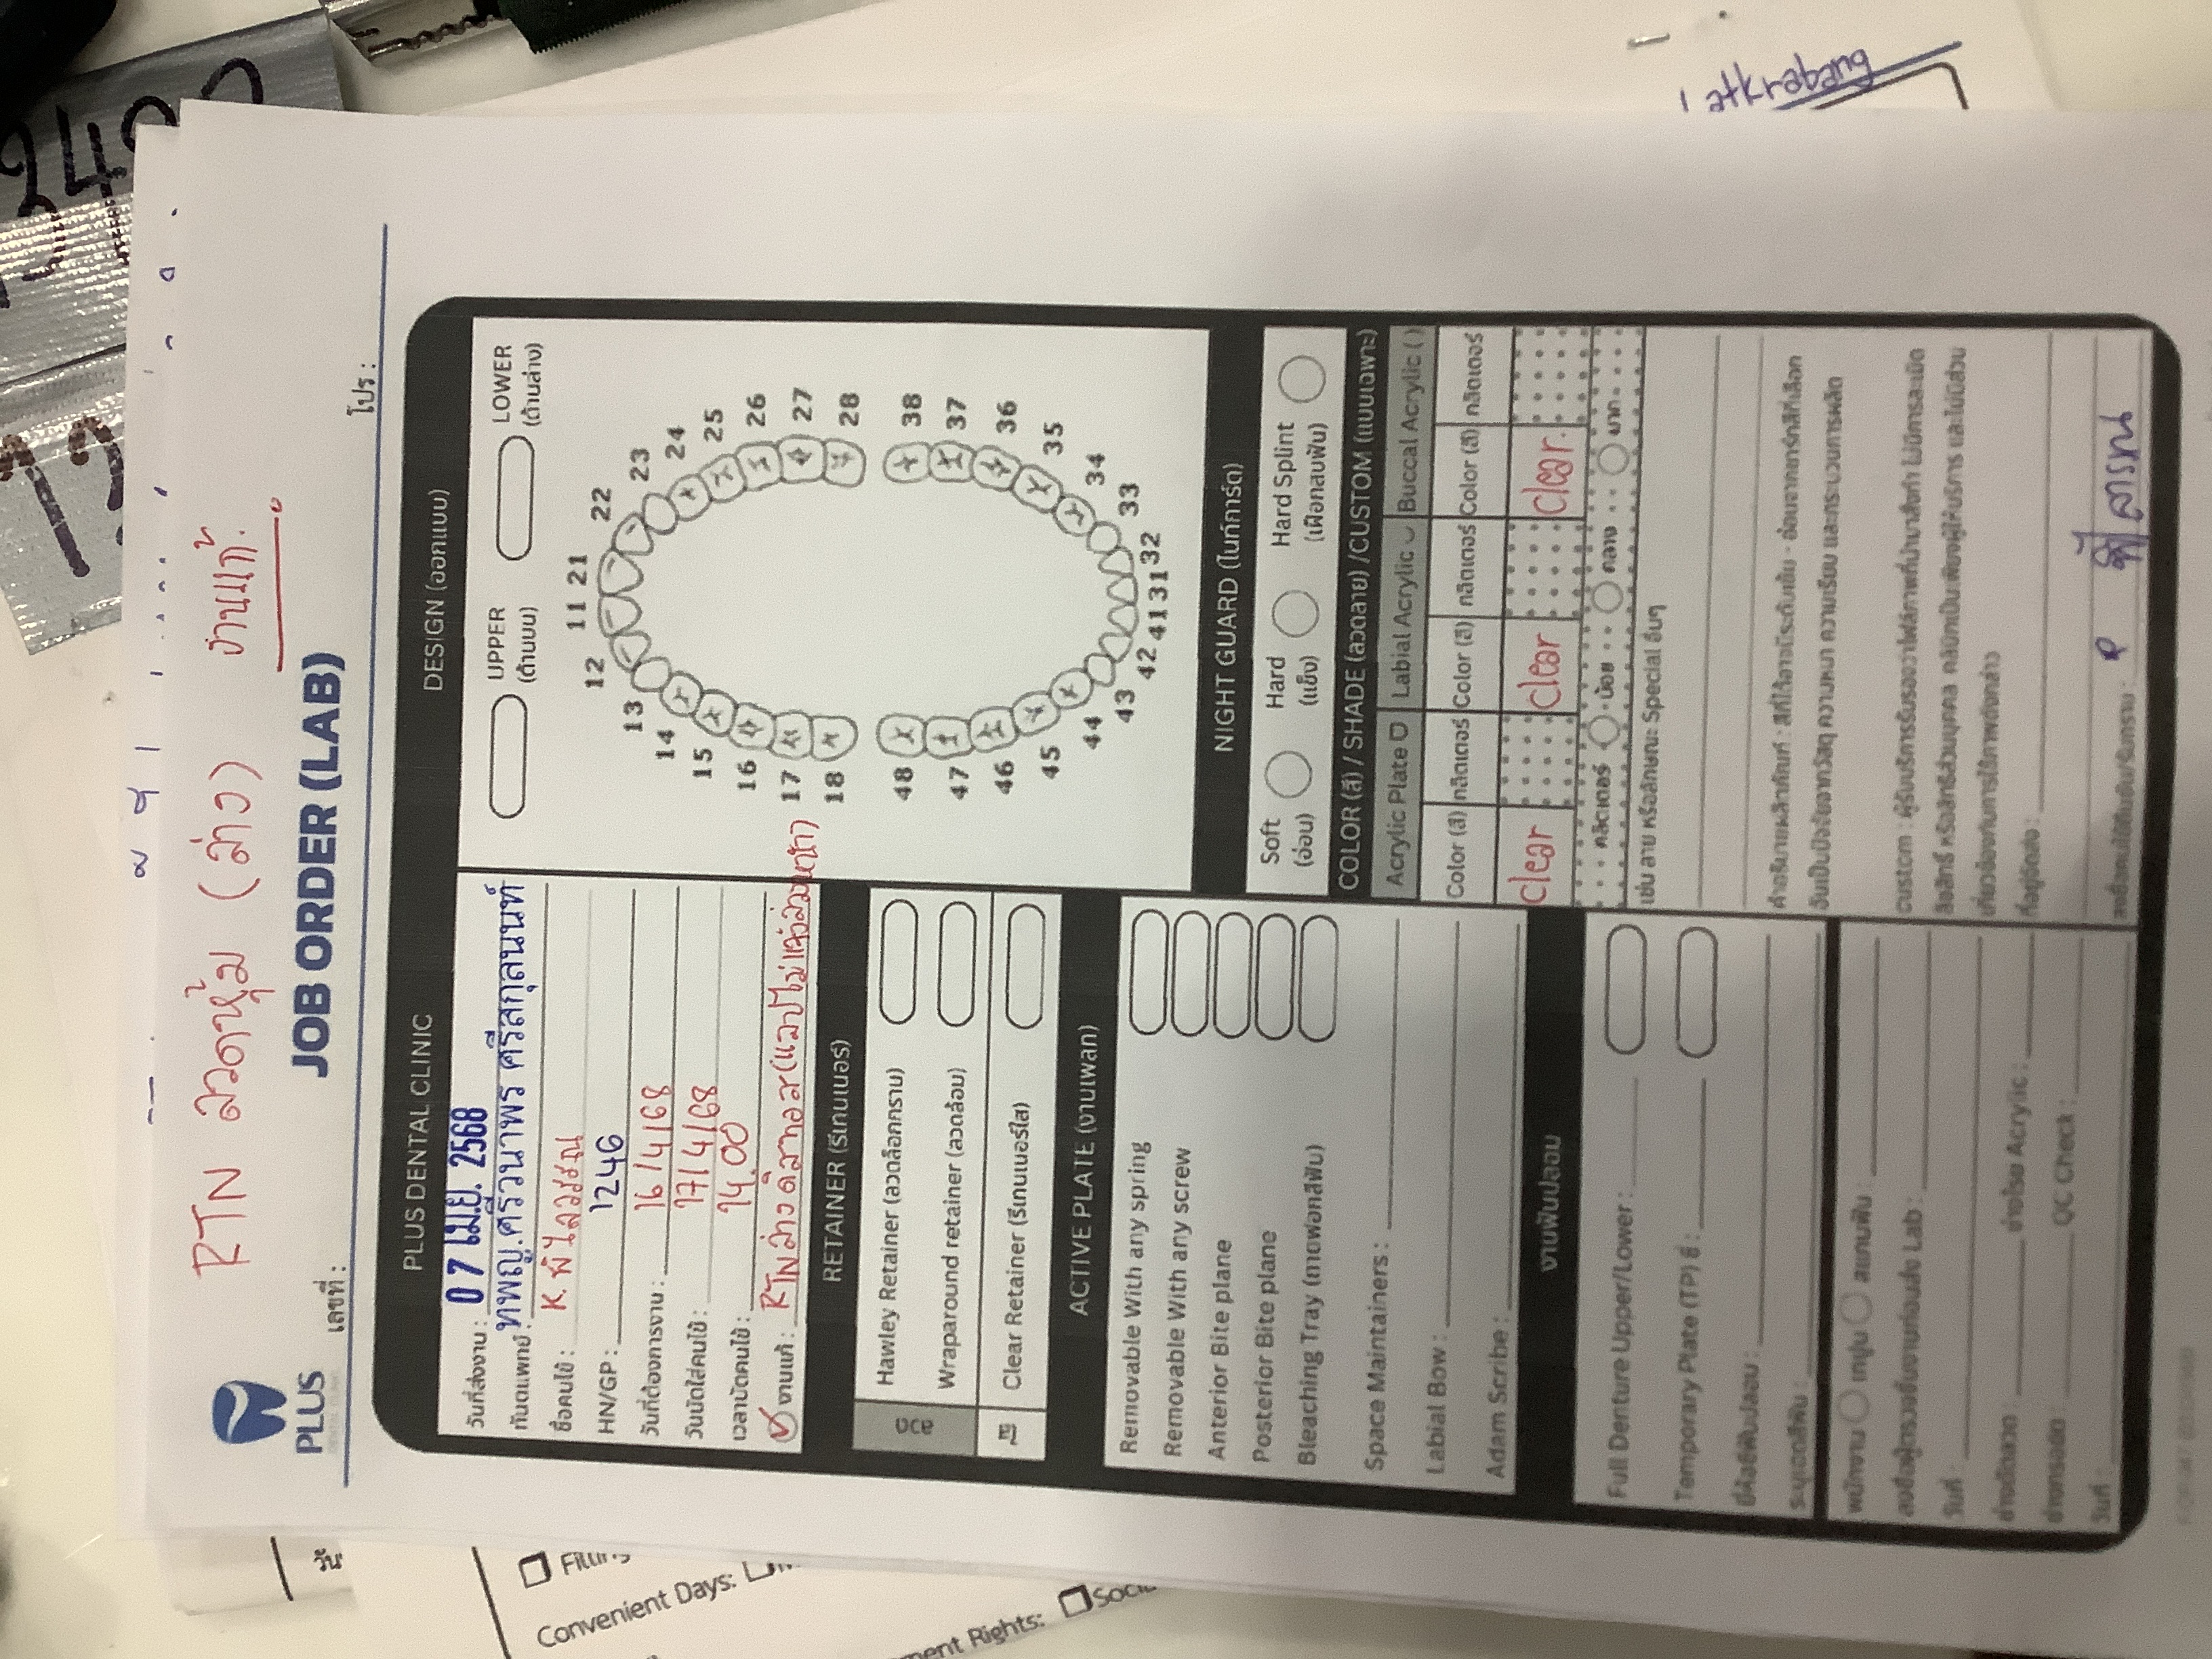 RTN ลวดหุ้ม (ล่าง) งานแก้.
PLUS
เลขที่ :
JOB ORDER (LAB)
โปร :
PLUS DENTAL CLINIC
วันที่ส่งงาน : 07 เม.ย. 2568
ทันตแพทย์ : ทพญ.ศรีวนาพร ศรีสกุลนนท์
ชื่อคนไข้ : K. พิไลวรรณ
HN/GP : 1246
วันที่ต้องการงาน : 16/4/68
วันนัดใส่คนไข้ : 17/4/68
เวลานัดคนไข้ : 14.00
งานแก้ : RTN ล่าง ดิสทอส (แลปไม่แจ้งล่วงหน้า)
RETAINER (รีเทนเนอร์)
ลวด
Hawley Retainer (ลวดล็อกกราม)
Wraparound retainer (ลวดล้อม)
ใส
Clear Retainer (รีเทนเนอร์ใส)
ACTIVE PLATE (งานเพลท)
Removable With any spring
Removable With any screw
Anterior Bite plane
Posterior Bite plane
Bleaching Tray (ถาดฟอกสีฟัน)
Space Maintainers :
Labial Bow :
Adam Scribe :
งานฟันปลอม
Full Denture Upper/Lower :
Temporary Plate (TP) ซี่ :
ยี่ห้อซี่ฟันปลอม :
ระบุเฉดสีฟัน :
พนักงาน เทปูน สแกนฟัน :
ลงชื่อผู้ตรวจชิ้นงานก่อนส่ง Lab :
วันที่ :
ช่างดัดลวด : ช่างโรย Acrylic :
ช่างกรอขัด : QC Check :
วันที่ :
DESIGN (ออกแบบ)
UPPER (ด้านบน)
LOWER (ด้านล่าง)
11 21
12 22
13 23
14 24
15 25
16 26
17 27
18 28
48 38
47 37
46 36
45 35
44 34
43 33
42 41 31 32
NIGHT GUARD (ไนท์การ์ด)
Soft (อ่อน)
Hard (แข็ง)
Hard Splint (เฝือกสบฟัน)
COLOR (สี) / SHADE (ลวดลาย) /CUSTOM (แบบเฉพาะ)
Acrylic Plate Labial Acrylic Buccal Acrylic ( )
Color (สี) กลิตเตอร์ Color (สี) กลิตเตอร์ Color (สี) กลิตเตอร์
clear clear clear.
กลิตเตอร์ น้อย กลาง มาก
เช่น ลาย หรือลักษณะ Special อื่นๆ
คำอธิบายผลิตภัณฑ์ : สีที่ได้อาจมีระดับเข้ม - อ่อนจากชาร์ทสีที่เลือก
อันเป็นปัจจัยจากวัสดุ ความหนา ความเรียบ และกระบวนการผลิต
custom : ผู้รับบริการรับรองว่าไฟล์ภาพที่นำมาสั่งทำ ไม่มีการละเมิด
ลิขสิทธิ์ หรือสิทธิส่วนบุคคล คลินิกเป็นเพียงผู้ให้บริการ และไม่มีส่วน
เกี่ยวข้องกับการใช้ภาพดังกล่าว
ที่อยู่จัดส่ง :
ลงชื่อคนไข้ยืนยัน/รับทราบ :
Convenient Days: